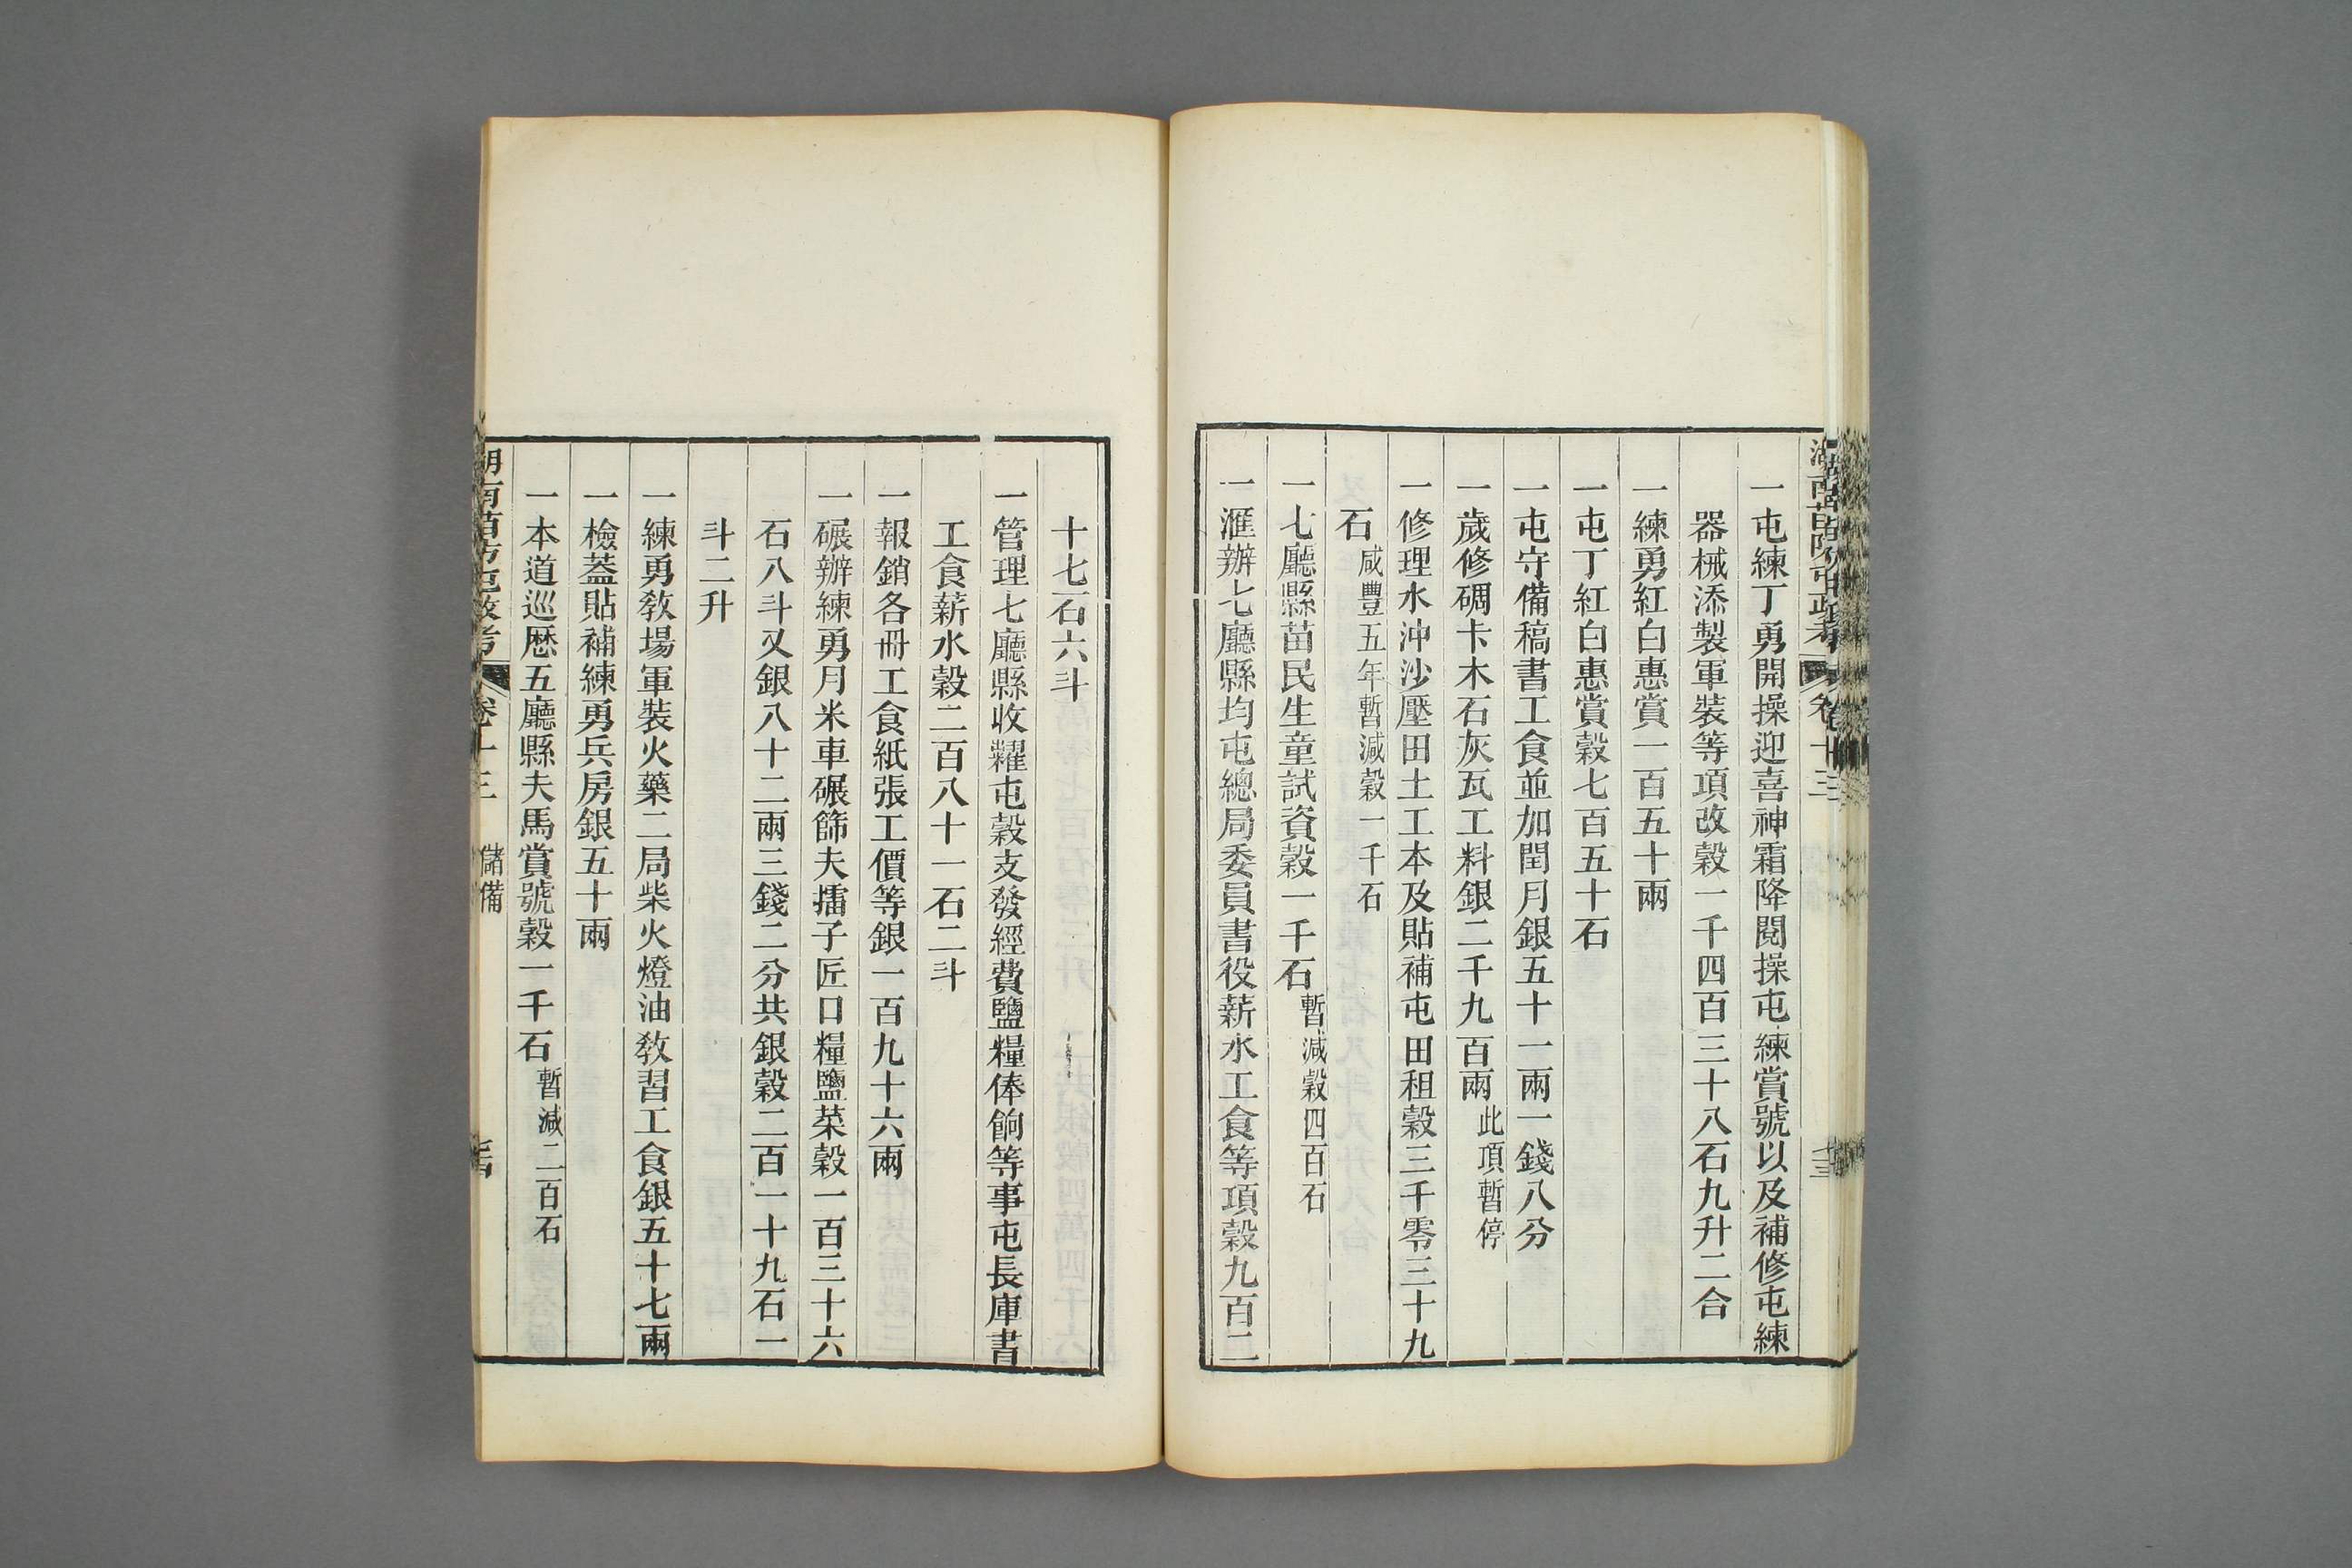 湖南苗防屯政考
卷十三
一屯練丁勇開操迎喜神霜降閱操屯練賞號以及補修屯練
器械添製軍裝等項改穀一千四百三十八石九升二合
一練勇紅白惠賞一百五十兩
一屯丁紅白惠賞穀七百五十石
一屯守備稿書工食並加閏月銀五十一兩一錢八分
一歲修碉卡木石灰瓦工料銀二千九百兩此項暫停
一修理水沖沙壓田土工本及貼補屯田租穀三千零三十九
石咸豐五年暫減穀一千石
一七廳縣苗民生童試資穀一千石暫減穀四百石
一滙辦七廳縣均屯總局委員書役薪水工食等項穀九百二
十七石六斗
一管理七廳縣收糶屯穀支發經費鹽糧俸餉等事屯長庫書
工食薪水穀二百八十一石二斗
一報銷各冊工食紙張工價等銀一百九十六兩
一碾辦練勇月米車碾篩夫擂子匠口糧鹽菜穀一百三十六
石八斗又銀八十二兩三錢二分共銀穀二百一十九石一
斗二升
一練勇教場軍裝火藥二局柴火燈油教習工食銀五十七兩
一檢蓋貼補練勇兵房銀五十兩
一本道巡歷五廳縣夫馬賞號穀一千石暫減二百石
湖南苗防屯政考
卷十三
儲備